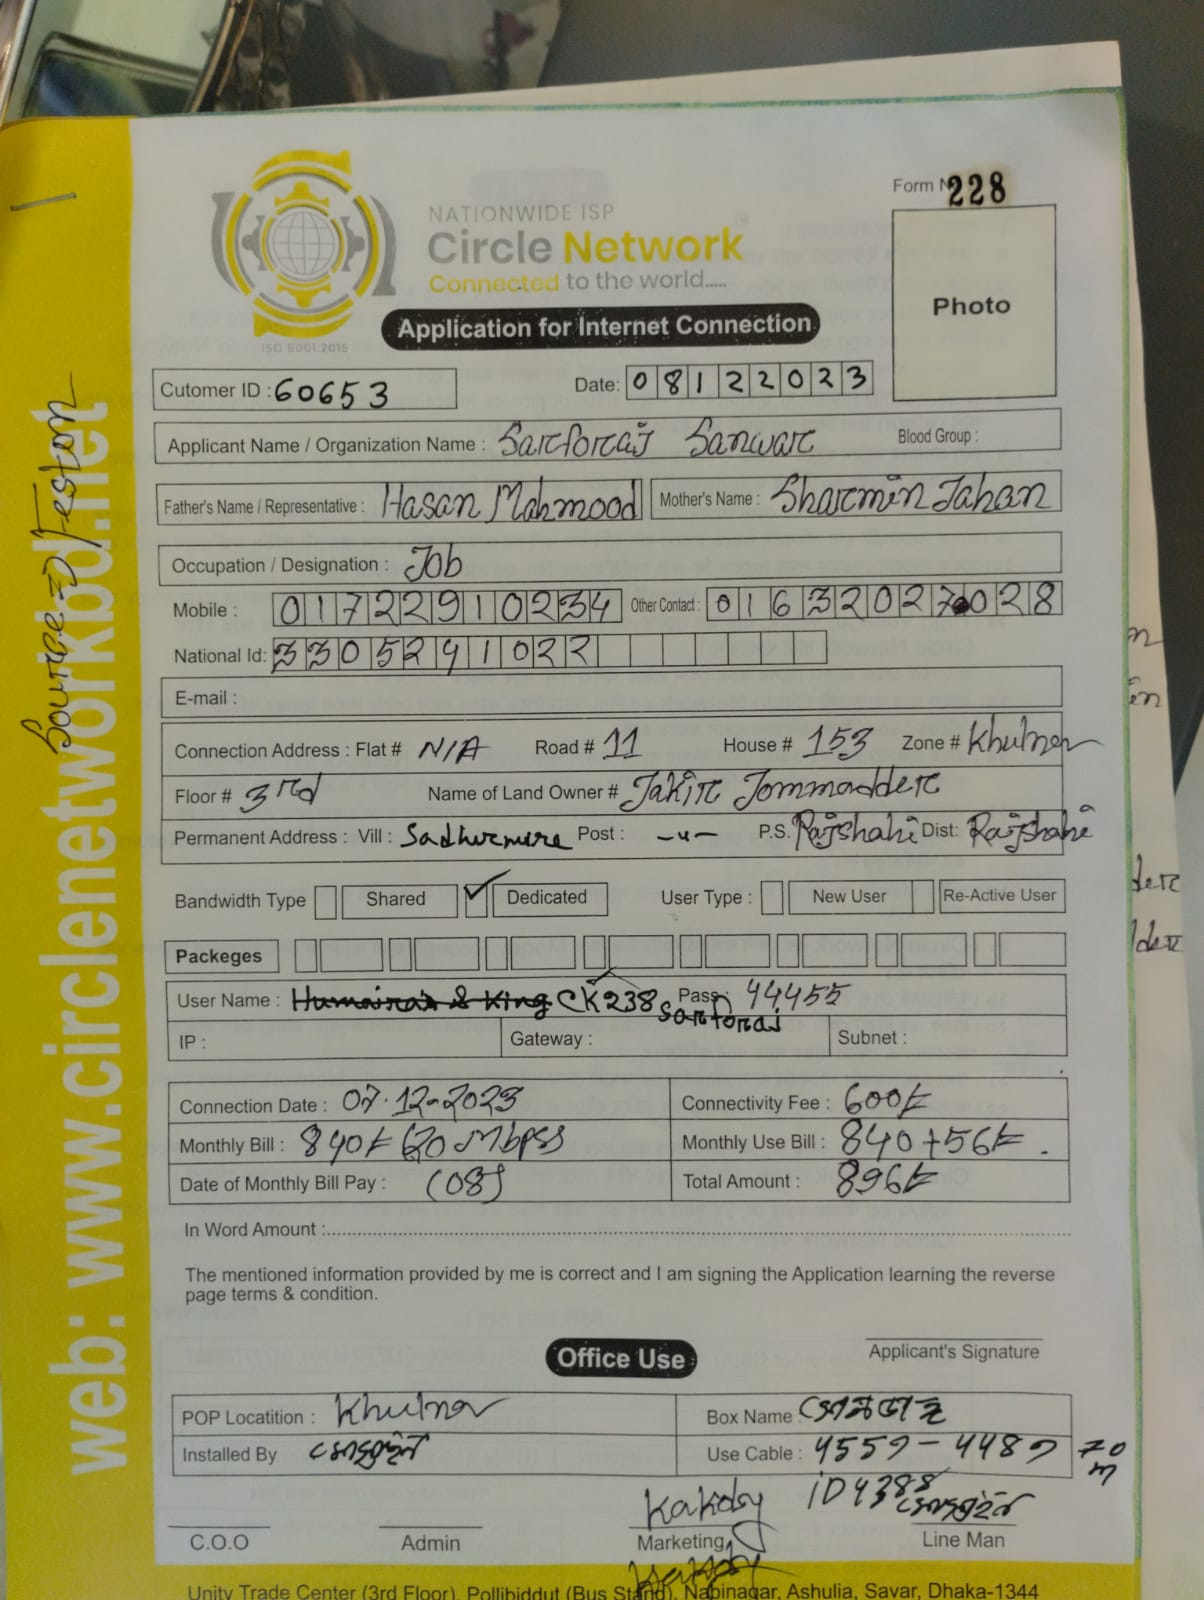 Form N 228
NATIONWIDE ISP
Circle Network
Connected to the world.....
ISO 9001:2015
Application for Internet Connection
Photo
Cutomer ID : 60653
Date: 08122023
Applicant Name / Organization Name : Sarforaj Sanwar Blood Group :
Father's Name / Representative : Hasan Mahmood Mother's Name : Sharmin Jahan
Occupation / Designation : Job
Mobile : 01722910234 Other Contact : 01632027028
National Id: 3305291022
E-mail :
Connection Address : Flat # N/A Road # 11 House # 153 Zone # Khulna
Floor # 3rd Name of Land Owner # Jakir Jommadder
Permanent Address : Vill : Post : -u- P.S. Rajshahi Dist: Rajshahi
Bandwidth Type Shared ✓ Dedicated User Type : New User Re-Active User
Packeges
User Name : CK238 Sarforaj Pass : 44455
IP : Gateway : Subnet :
Connection Date : 07.12-2023 Connectivity Fee : 600/=
Monthly Bill : 840/= Monthly Use Bill : 840+56/=
Date of Monthly Bill Pay : (08) Total Amount : 896/=
In Word Amount :
The mentioned information provided by me is correct and I am signing the Application learning the reverse
page terms & condition.
Applicant's Signature
Office Use
POP Locatition : Khulna Box Name :
Installed By Use Cable : 70 m
Kakoly iD 4388
C.O.O Admin Marketing Line Man
Unity Trade Center (3rd Floor), Pollibiddut (Bus Stand), Nabinagar, Ashulia, Savar, Dhaka-1344
web: www.circlenetworkbd.net